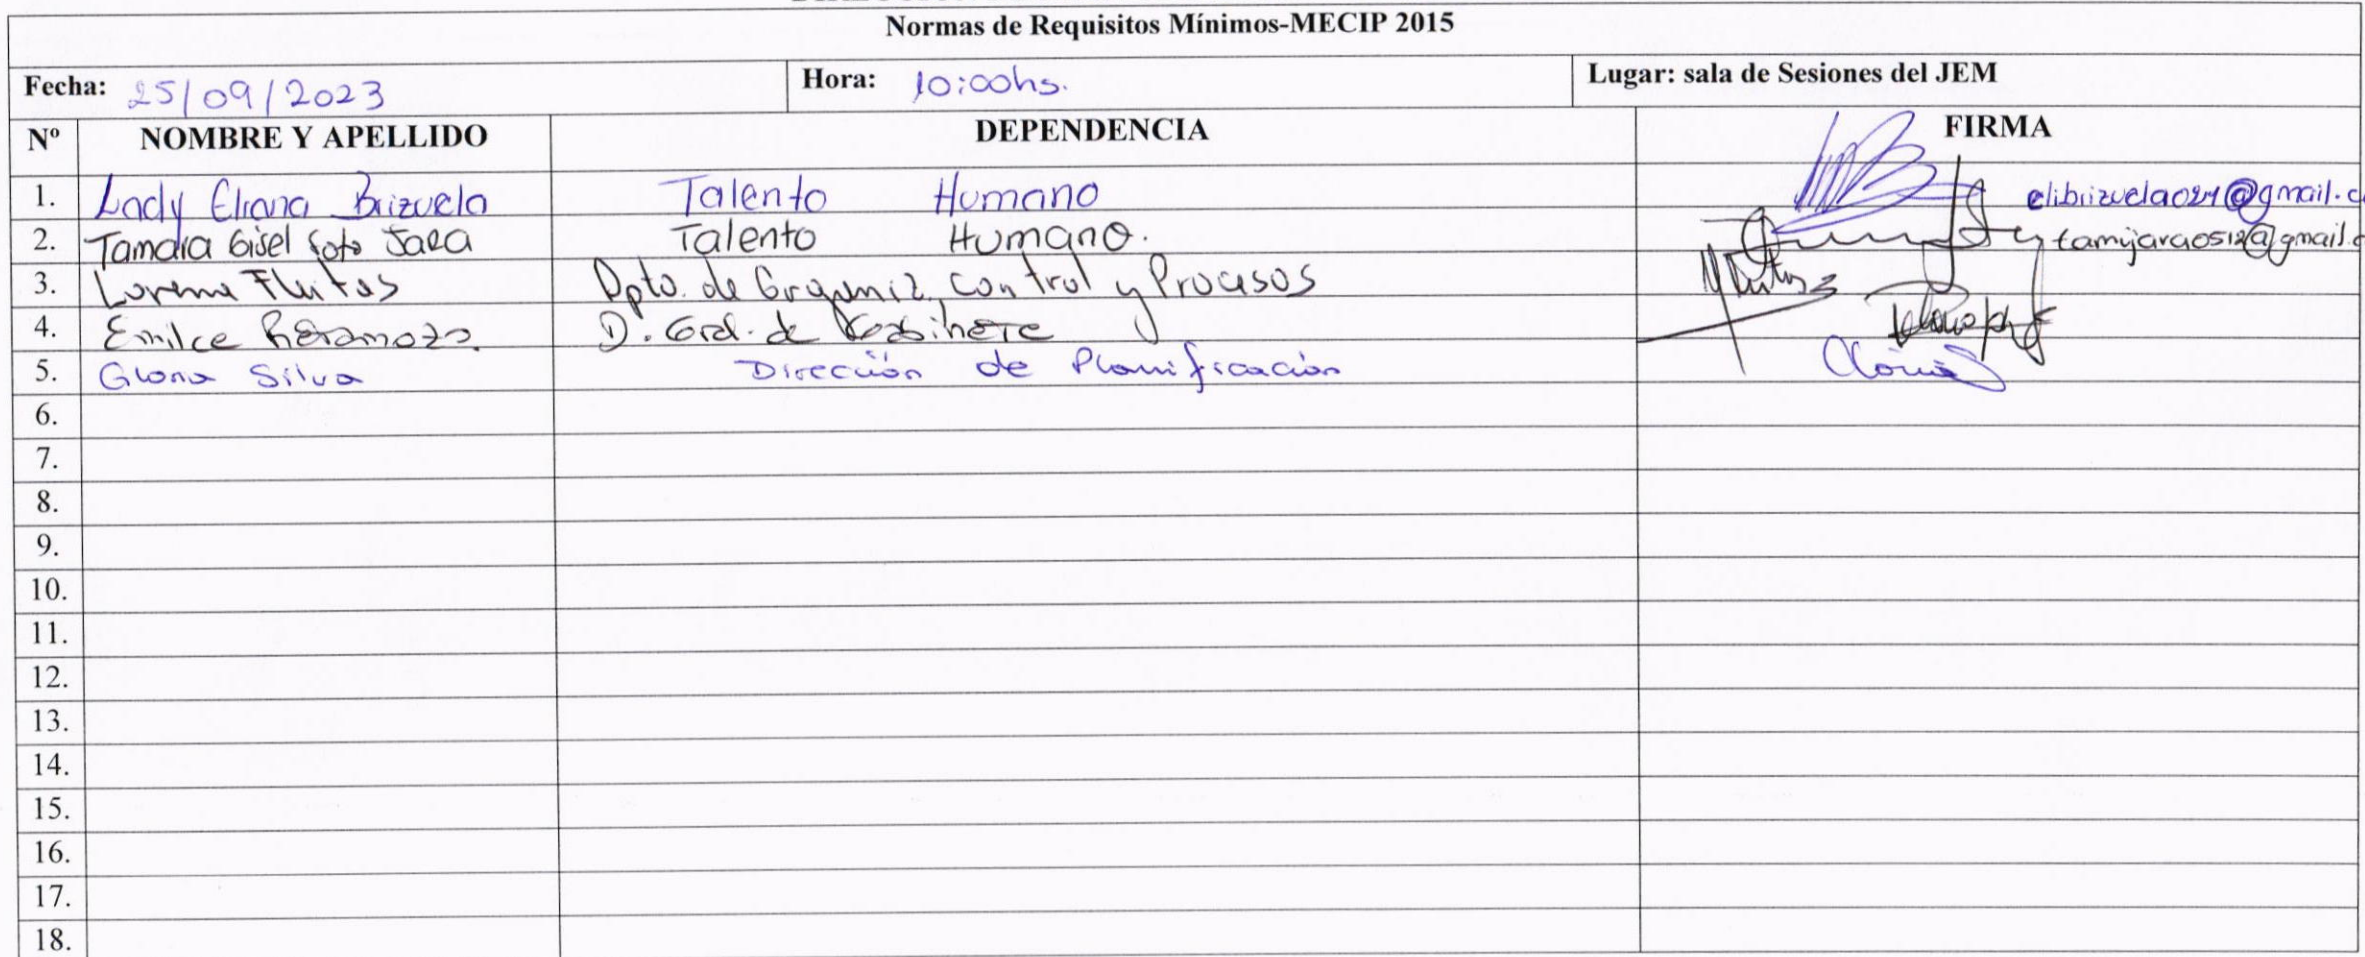 Normas de Requisitos Mínimos-MECIP 2015
Fecha: 25/09/2023 Hora: 10:00hs. Lugar: sala de Sesiones del JEM
Nº NOMBRE Y APELLIDO DEPENDENCIA FIRMA
1. Lady Eliana Brizuela Talento Humano elibrizuela024@gmail.c
2. Tamara Gisel Soto Jara Talento Humano. tamijara0512@gmail.c
3. Lorena Fleitas Dpto. de Organiz, Control y Procesos
4. Emilce D. Gral. de Gabinete
5. Gloria Silva Dirección de Planificación
6.
7.
8.
9.
10.
11.
12.
13.
14.
15.
16.
17.
18.